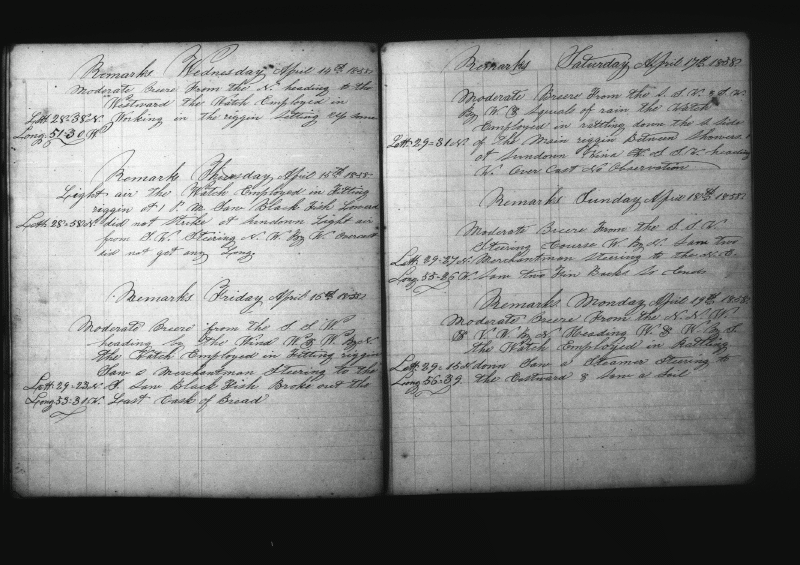 Remarks Wednesday April 14th 1858
Moderate Breeze From the N. heading to the
Westward the Watch Employed in
Latt 28=38=N. Working in the riggin Setting up some
Long 51=30 W
Remark Thursday April 15th 1858
Light air the Watch Employed in Fitting
riggin at 1 P. M. Saw Black Fish Lowerd
Latt 28=58=N did not Strike at Sundown Light air
from S.W. Steering N. W. By W. Overcast
did not get any Long
Remarks Friday April 16th 1858
Moderate Breeze from the S S W
heading by The Wind W & W By N
The Watch Employed in Fitting riggin
Saw a Merchantman Steering to the
Latt 29=23 N S Saw Black Fish Broke out the
Long 53=31 W. Last Cask of Bread
Remarks Saturday April 17th 1858
Moderate Breeze From the S. S. W. & S W
By W. & Squals of rain the Watch
Employed in rattling down the S Side
Latt 29=31 N. of The Main riggin Between Showers
at Sundown Wind S. S. W. heading
W. Over Cast No Observation
Remarks Sunday April 18th 1858
Moderate Breeze From the S. S. W
Steering Course W. By N. Saw two
Latt 29=27 N. Merchantman Steering to the N. E.
Long 55=25 W. Saw two Fin Backs So Ends
Remarks Monday April 19th 1858
Moderate Breeze From the N. N. W.
& N W By N Heading W. & W. By S.
The Watch Employed in Rattling
Latt 29=15 N down Saw a Steamer Steering to
Long 56=39. the Eastward & Saw a Sail